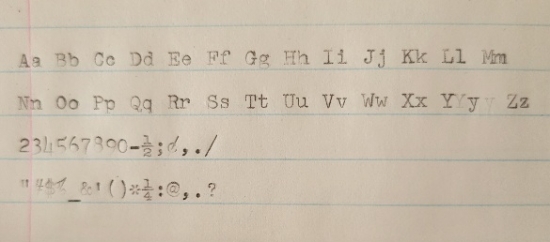 Aa Bb Cc Dd Ee Ff Gg Hh Ii Jj Kk Ll Mm
Nn Oo Pp Qq Rr Ss Tt Uu Vv Ww Xx YYyy Zz
234567890-½;¢,./
"#$%_&'()*¼:@,.?